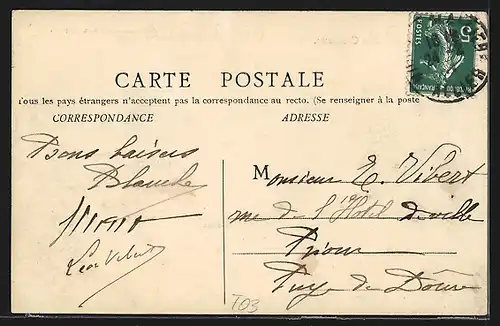 CARTE POSTALE
Tous les pays étrangers n'acceptent pas la correspondance au recto. (Se renseigner à la poste
CORRESPONDANCE
ADRESSE
Bons baisers
Blanche
Léon Vibert
Monsieur E. Vibert
rue de l'Hôtel de ville
Riom
Puy de Dôme
T03
5
POSTES